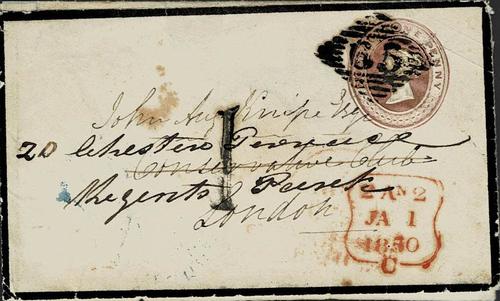 ONE PENNY
John Aug Knipe Esqr
20 Chester Terrace
Conservative Club
Regents Park
London
1
2 AN 2
JA 1
1850
C